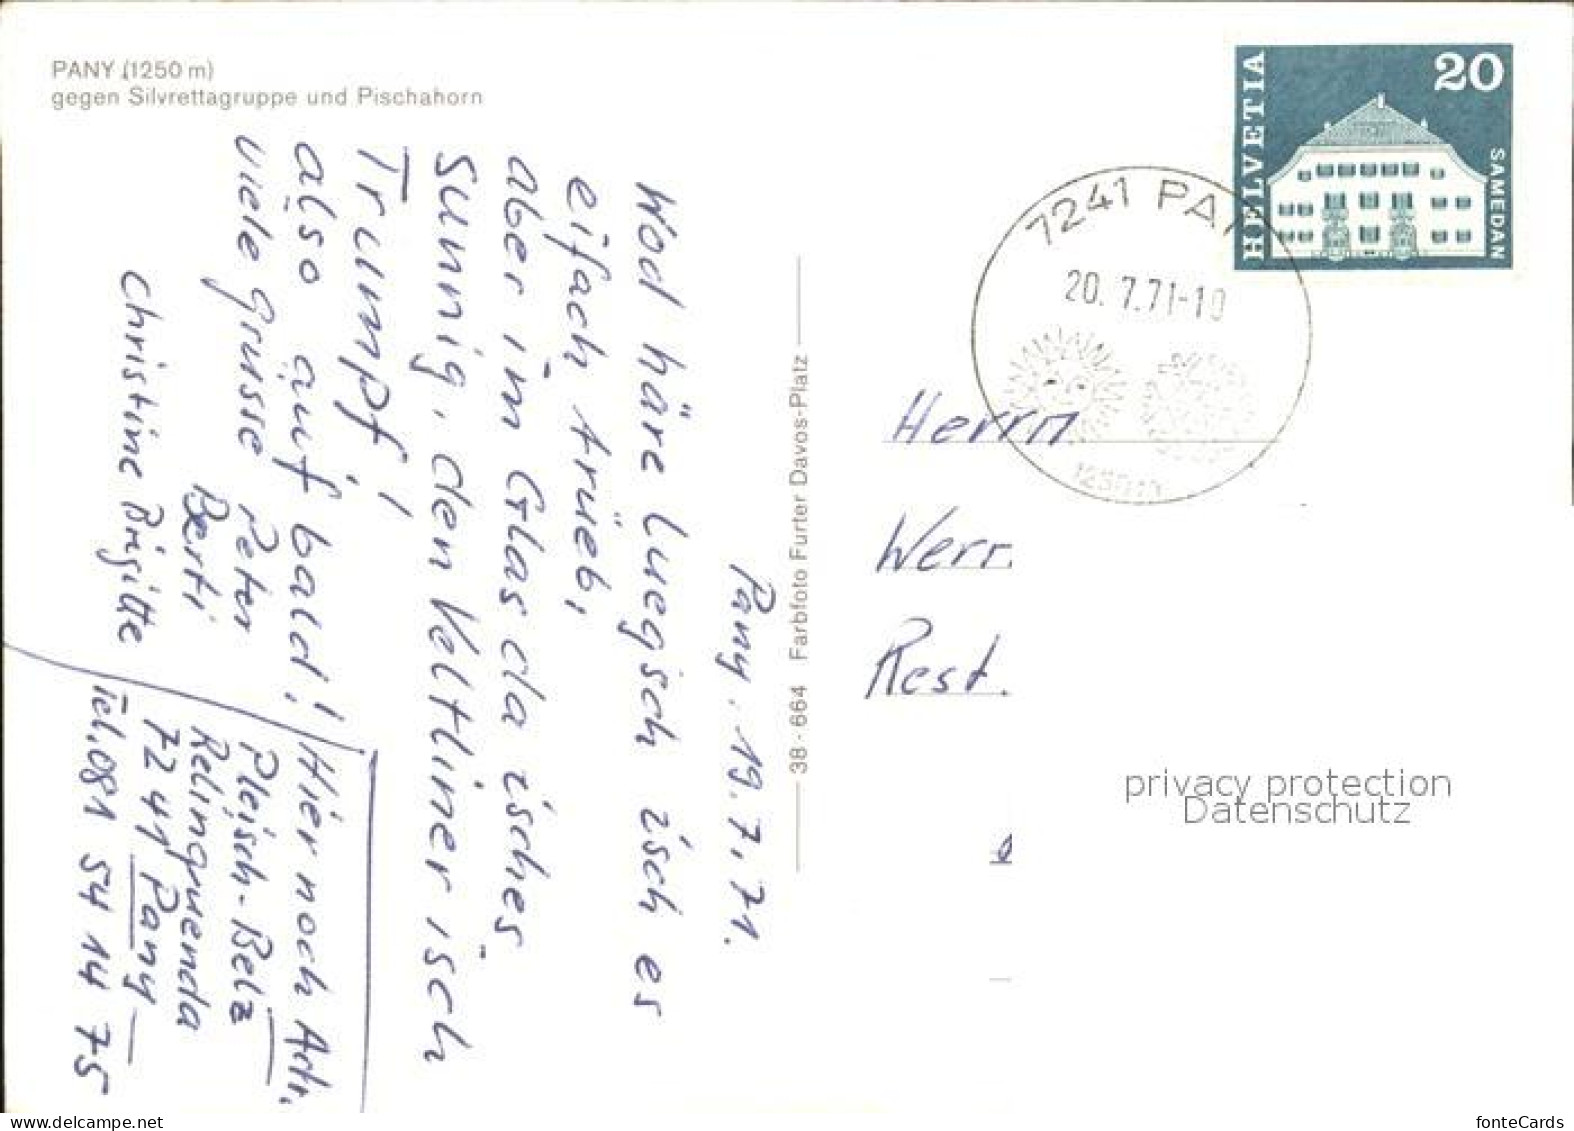 PANY (1250 m)
gegen Silvrettagruppe und Pischahorn
Pany. 19.7.71.
Wod häre luegsch isch es
eifach trüeb,
aber im Glas da isches
Sunnig, den Veltliner isch
Trumpf!
also auf bald!
viele Grüsse Peter
Berti
Christine Brigitte
Hier noch Adr.
Pleisch-Belz
Relinquenda
7241 Pany
Tel. 081 54 14 75
38 - 664 Farbfoto Furter Davos-Platz
HELVETIA
20
SAMEDAN
7241 PANY
20.7.71-10
1250 m
Herrn
Werr.
Rest.
privacy protection
Datenschutz
www.ansichtskartenversand.com
fonteCards